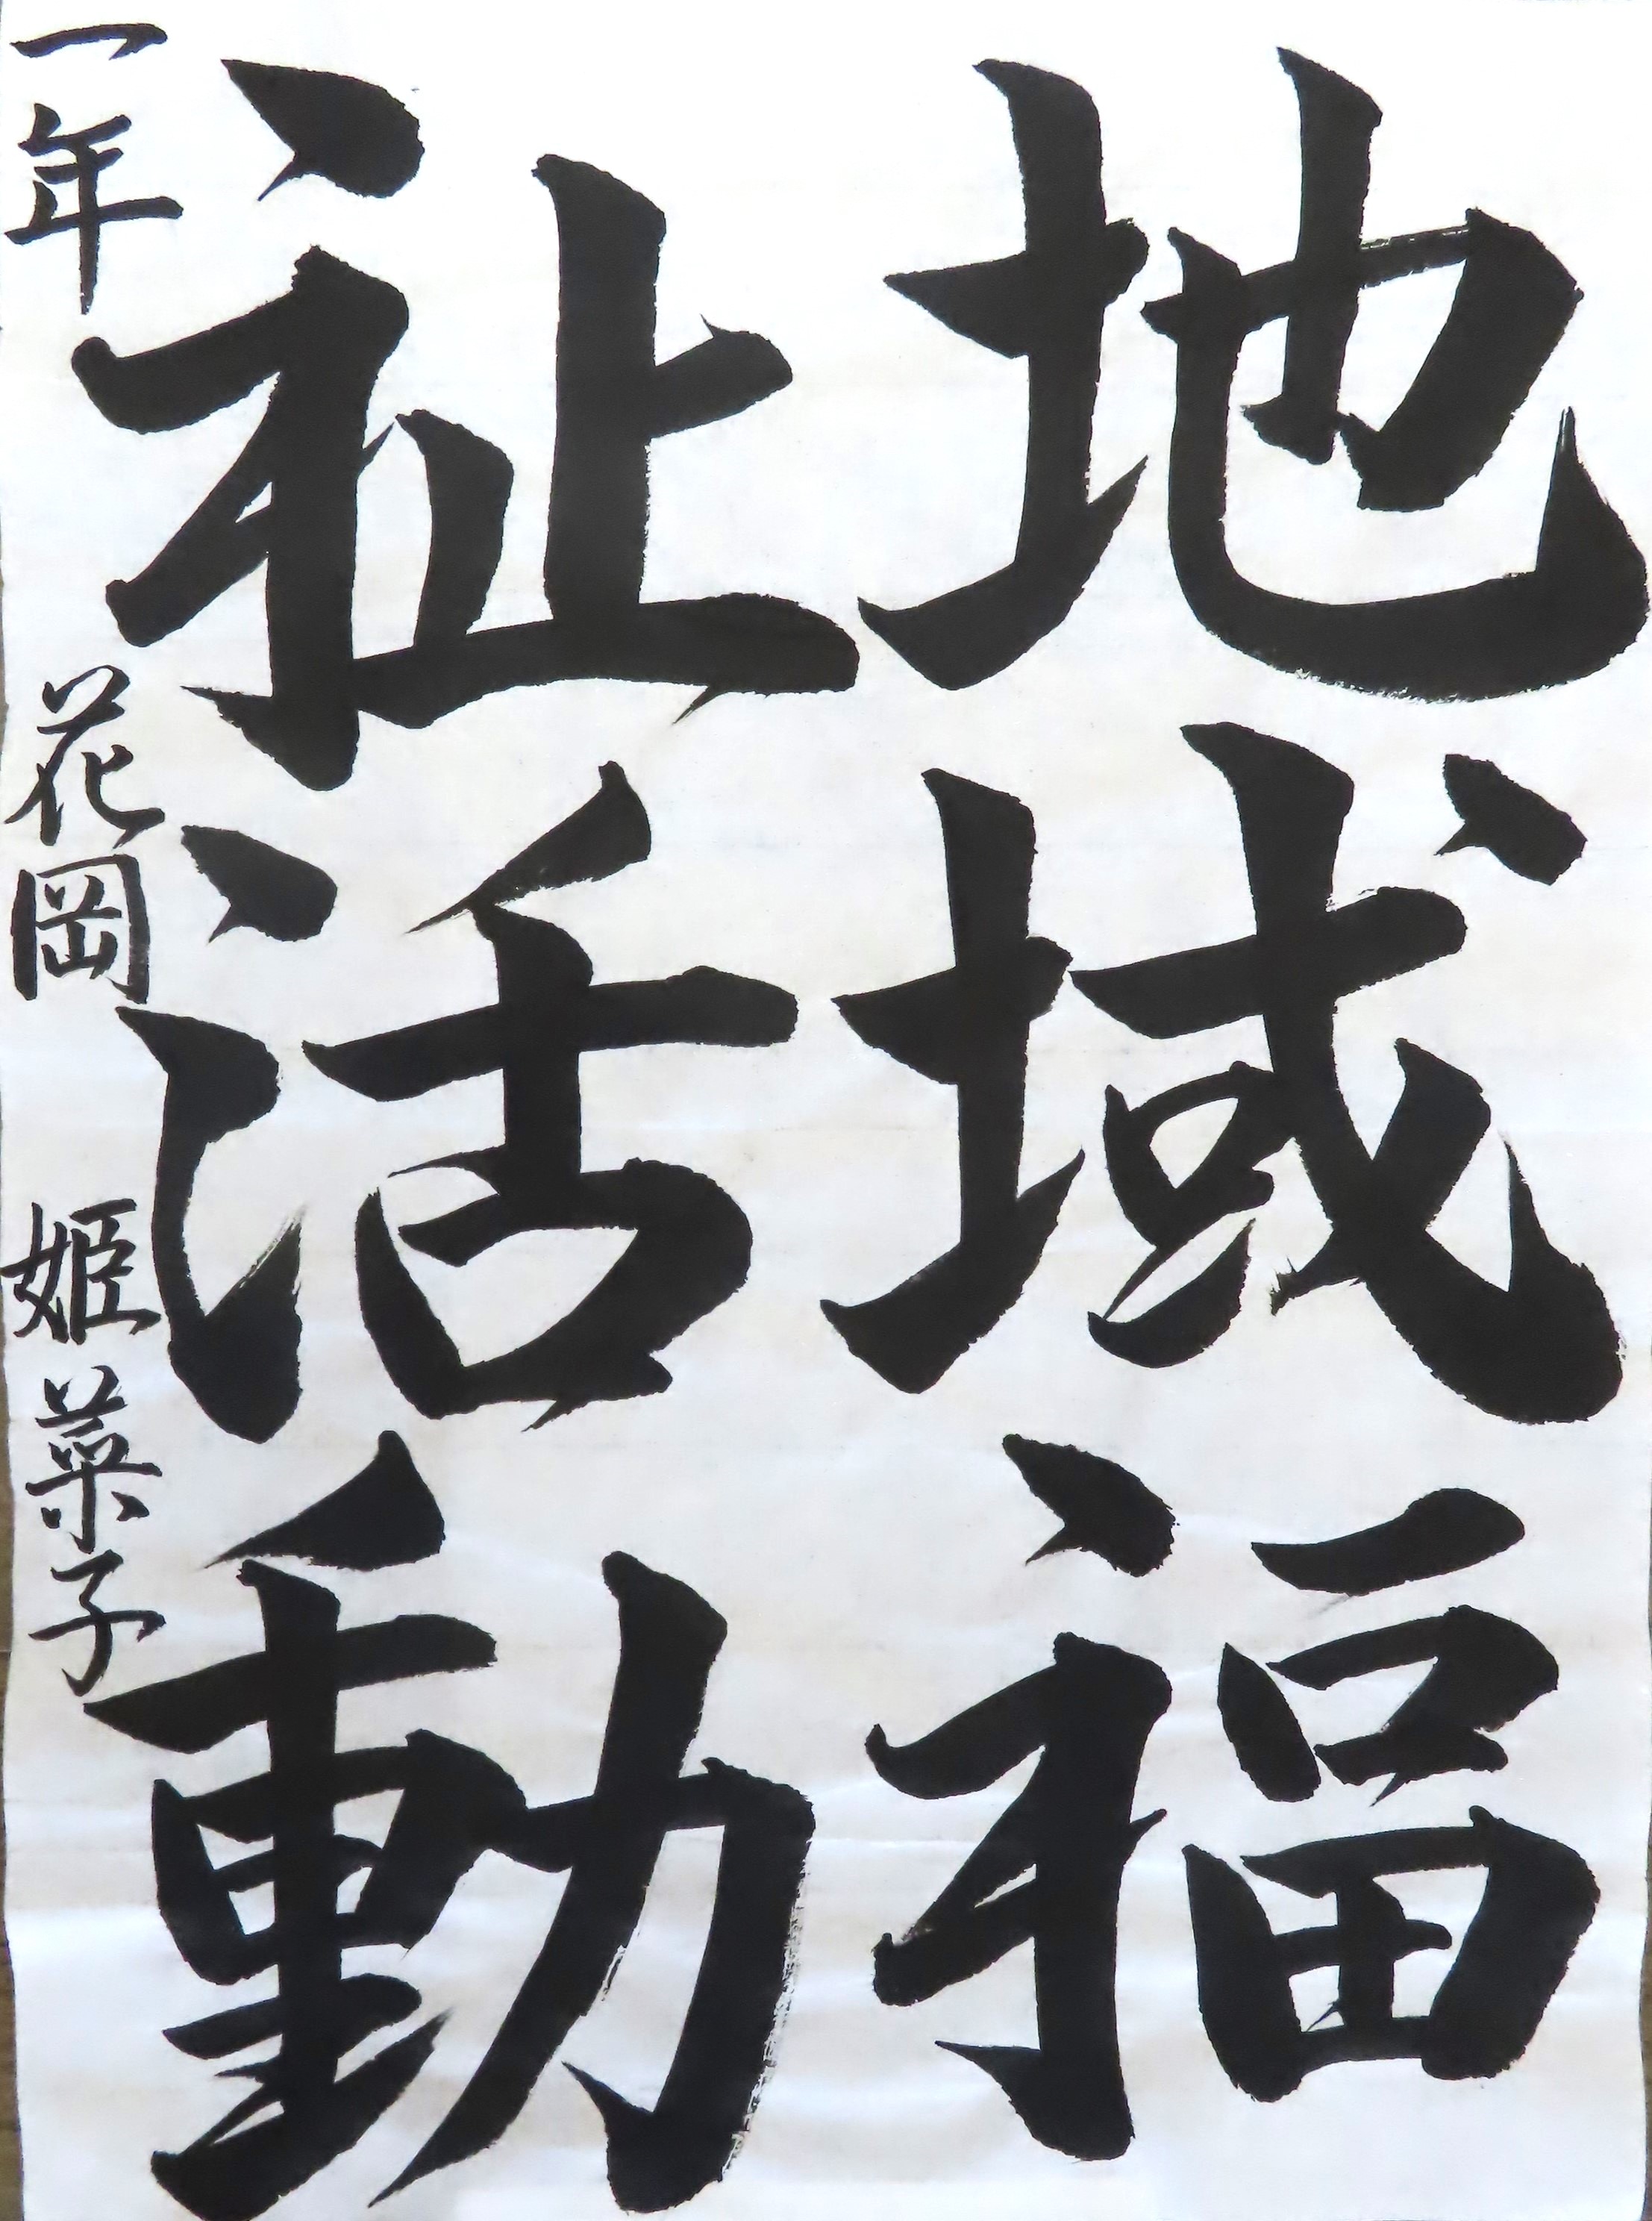 地域福
祉活動
一年 花岡 姫菜子